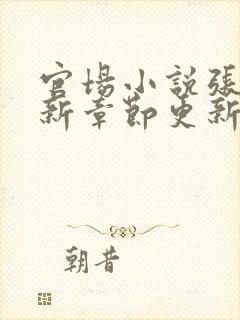 官场小説張
新章節更新
朝昔